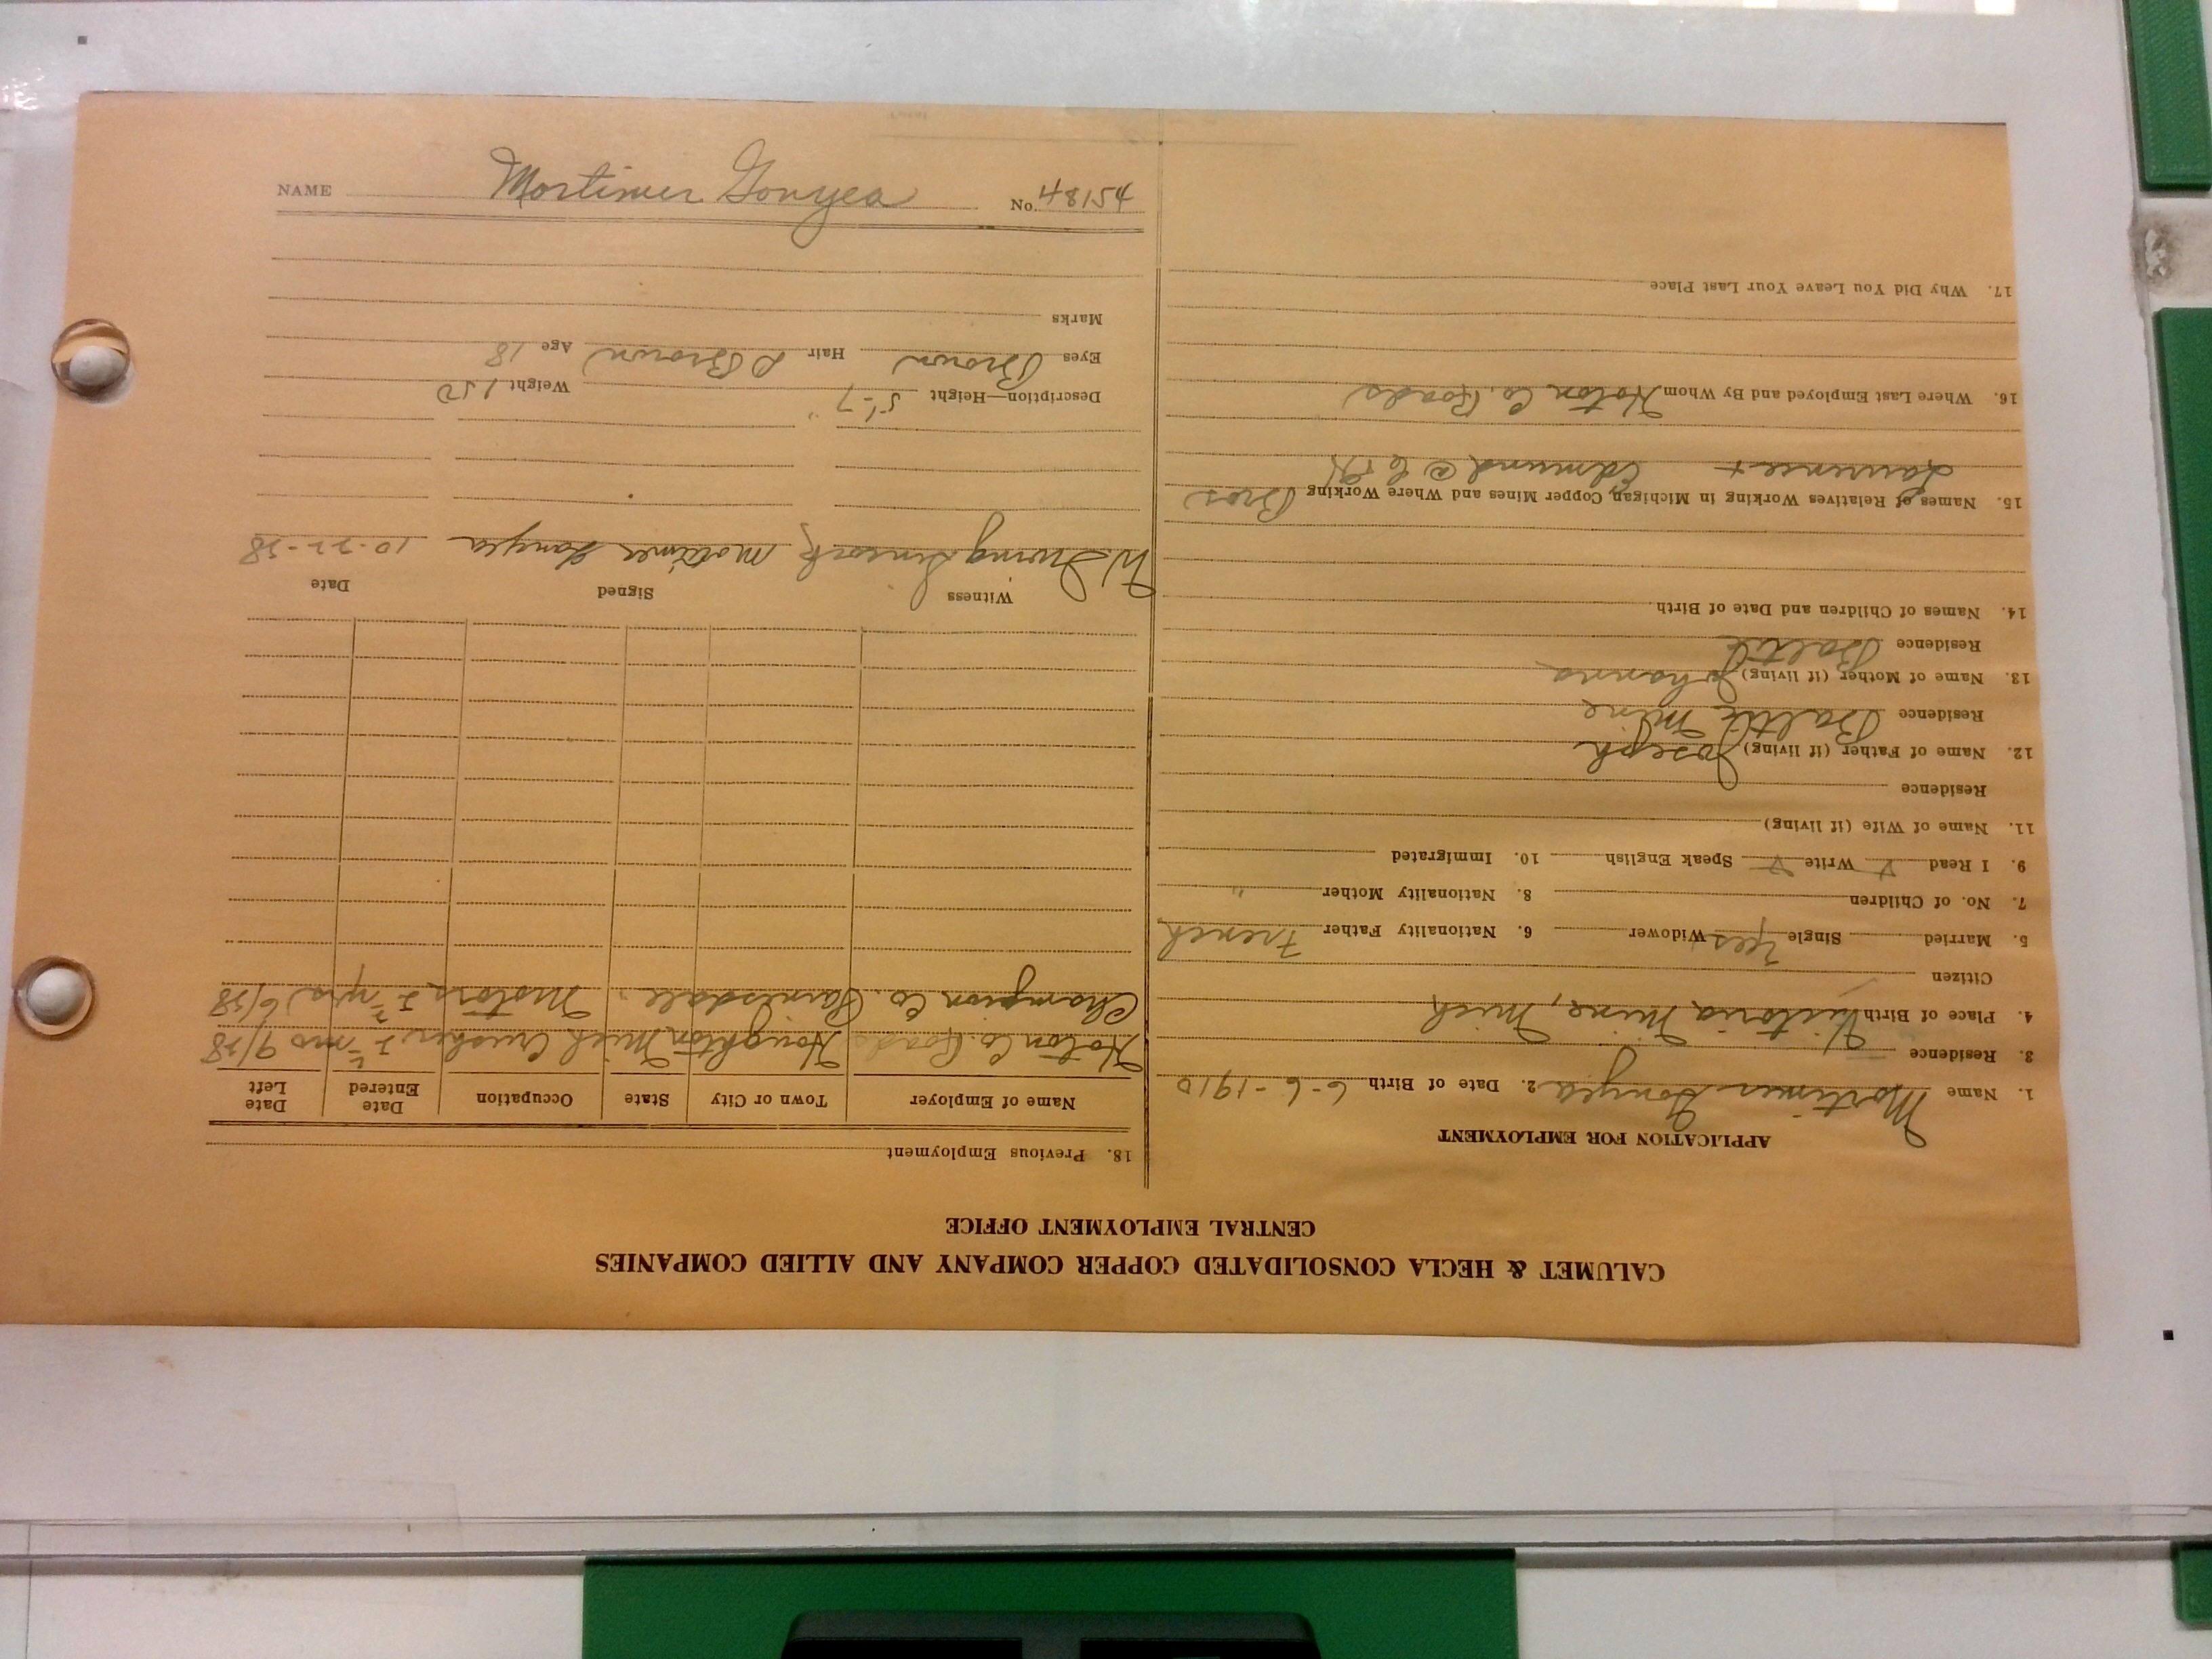 NAME Mortimer Gonyea No. 48154
CALUMET & HECLA CONSOLIDATED COPPER COMPANY AND ALLIED COMPANIES
CENTRAL EMPLOYMENT OFFICE
APPLICATION FOR EMPLOYMENT
1. Name Mortimer Gonyea 2. Date of Birth 6-6-1910
3. Residence
4. Place of Birth Victoria Mine, Mich
Citizen
5. Married Single Yes Widower 6. Nationality Father French
7. No. of Children 8. Nationality Mother "
9. I Read √ Write √ Speak English 10. Immigrated
11. Name of Wife (if living)
Residence
12. Name of Father (if living) Joseph
Residence Baltic Mine
13. Name of Mother (if living) Johanna
Residence Baltic
14. Names of Children and Date of Birth
15. Names of Relatives Working in Michigan Copper Mines and Where Working Bros
Laurence + Edmund @ C
16. Where Last Employed and By Whom Hoton Co. Roads
17. Why Did You Leave Your Last Place
18. Previous Employment
Name of Employer Town or City State Occupation Date Entered Date Left
Hoton Co. Roads Houghton Mich Crusher mo 9/28
Champion Co. Painesdale Motors yrs 6/28
Witness Signed Date
W Irving Mortimer Gonyea 10-22-28
Description—Height 5'-7" Weight 150
Eyes Brown Hair D Brown Age 18
Marks